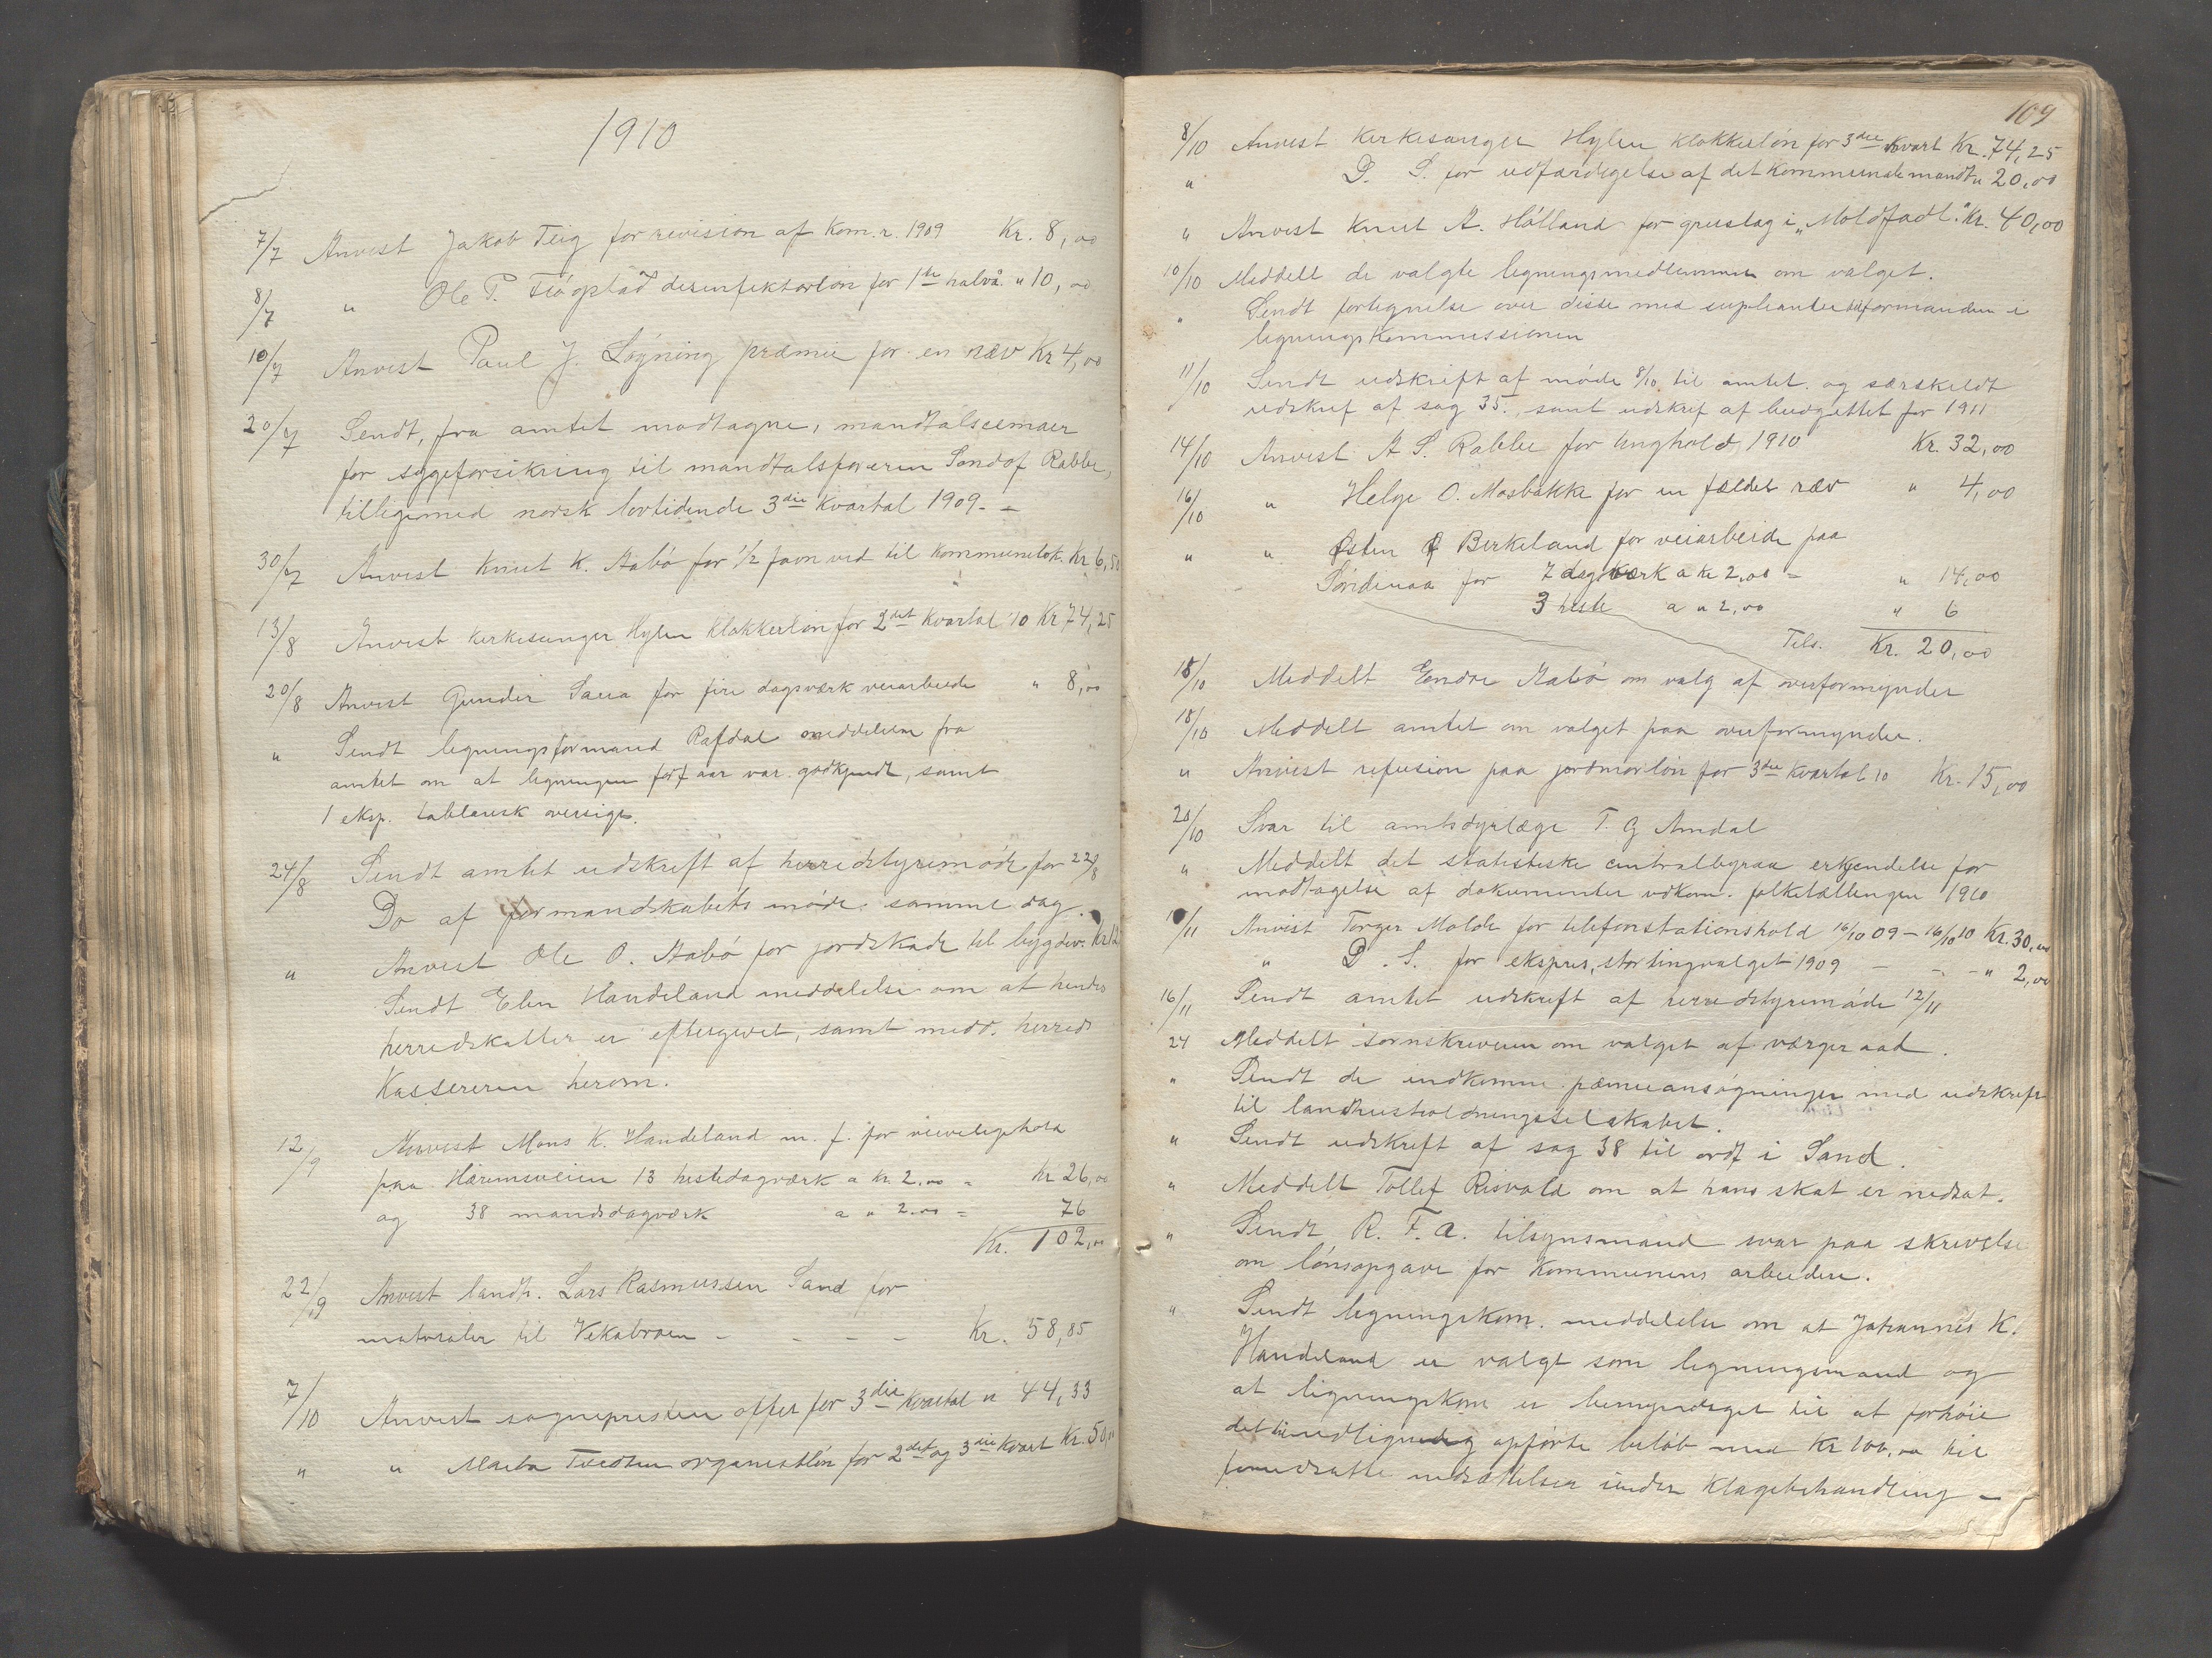 1910
7/7 Anvist Jakob Teig for revision af Kom. r. 1909 Kr. 8,00
8/7 " Ole T. desinfektorløn for 1ste halvå. " 10,00
10/7 Anvist Paul J. Løgning præmie for en ræv Kr 4,00
20/7 Sendt, fra amtet modtagne,
for sygeforsikring til mandtalsføreren Rabbe,
tilligemed norsk lovtidende 3die kvartal 1909. –
30/7 Anvist Knut K. Aabø for 1/2 favn ved til kommunelok. Kr 6,50
13/8 Anvist kirkesanger Hylen klokkerløn for 2det kvartal 10 Kr 74,25
20/8 Anvist Gunder Saua for fire dagsværk veiarbeide " 8,00
" Sendt ligningsformand Rafdal meddelelse fra
amtet om at ligningen for f aar var godkjendt, samt
1 eksp. tablarisk oversigt.
24/8 Sendt amtet udskrift af herredstyremøde for 22/8
Do af formandskabets møde samme dag.
" Anvist Ole O. Aabø for jordskade til bygdev. Kr 12
Sendt Elen Handeland meddelelse om at hendes
herredskatter er eftergivet, samt medd. herreds
Kassereren herom.
12/9 Anvist Mons K. Handeland m. fl. for
paa 13 hestedagværk a kr. 2.00 = Kr 26,00
og 38 mandsdagværk a " 2.00 = 76
Kr. 102,00
22/9 Anvist landh. Lars Rasmussen Sand for
materialer til Vekabroen – – – – Kr. 58,85
7/10 Anvist sognepresten offer for 3die kvartal " 44,33
" " Tveden organistløn for 2det og 3die kvart Kr. 50,00
109
8/10 Anvist kirkesanger Hylen klokkerløn for 3die kvart Kr. 74,25
" D. S. for udfærdigelse af det kommunale mandt " 20,00
" Anvist Knut A. Hålland for grustag i „Moldfadl." Kr. 40,00
10/10 Meddelt de valgte ligningsmedlemmer om valget.
" Sendt fortegnelse over disse med supleanter til formanden i
ligningskommissionen
11/10 Sendt udskrift af møde 8/10 til amtet. og særskildt
udskrif af sag 35. samt udskrif af budgettet for 1911
14/10 Anvist A S. Rabbe for tinghold 1910 Kr. 32,00
16/10 " Helge O. Mosbakke for en fældet ræv " 4,00
" " Østen Ø Birkeland for veiarbeide paa
for 7 dagsværk a kr 2,00 = " 14,00
3 heste a " 2,00 " 6
Tils. Kr. 20,00
18/10 Meddelt Endre Aabø om valg af overformynder
18/10 Meddelt amtet om valget paa overformynder.
" Anvist refusion paa jordmorløn for 3die kvartal 10 Kr. 15,00
20/10 Svar til amtsdyrlæge T. G Amdal
" Meddelt det statistiske centralbyraa erkjendelse for
modtagelse af dokumenter vdkom. folketællingen 1910
/11 Anvist Torger Molde for telefonstationshold 16/10 09 – 16/10 10 Kr. 30,00
" D. S. for ekspres, stortingvalget 1909 – – – " 2,00
16/11 Sendt amtet udskrift af herredstyremøde 12/11
24 Meddelt sornskriveren om valget af værgeraad.
" Sendt de indkomne præmieansøgninger med udskrift
til landhusholdningsselskabet.
" Sendt udskrift af sag 38 til ordf i Sand.
" Meddelt Tollef Risvold om at hans skat er nedsat.
" Sendt R. F. A. tilsynsmand svar paa skrivelse
om lønsopgave for kommunens arbeidere.
" Sendt ligningskom. meddelelse om at Johannes K.
Handeland er valgt som ligningsmand og
at ligningskom er bemyndiget til at forhøie
det opførte beløb med Kr 100,00 til
nedsættelser under klagebehandling –